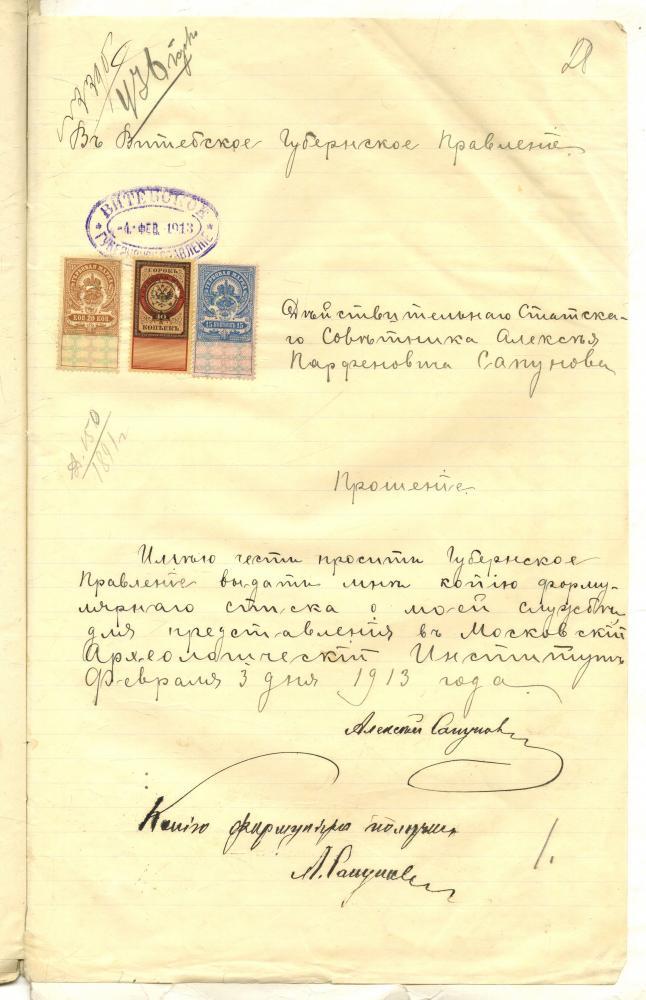 28
Въ Витебское Губернское Правленіе
ВИТЕБСКОЕ
-4. ФЕВ. 1913
ГУБЕРНСКОЕ ПРАВЛЕНІЕ
ГЕРБОВАЯ МАРКА
КОП 20 КОП
СОРОКЪ
40
КОПѢЕКЪ
ГЕРБОВАЯ МАРКА
15 КОПѢЕКЪ 15
Дѣйствительнаго Статска-
го Совѣтника Алексѣя
Парфеновича Сапунова
Д. 150
1891 г
Прошеніе
Имѣю честь просить Губернское
Правленіе выдать мнѣ копію форму-
лярнаго списка о моей службѣ
для представленія въ Московскій
Археологическій Институтъ
Февраля 3 дня 1913 года
Алексѣй Сапуновъ
Копію формуляра получилъ
А. Сапуновъ